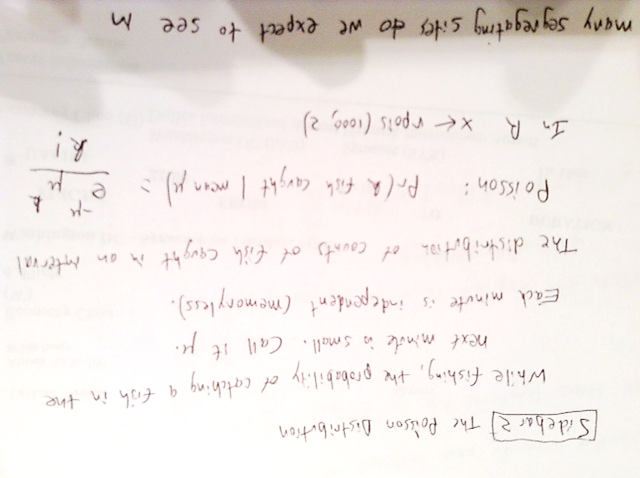 Sidebar 2 The Poisson Distribution
While fishing, the probability of catching a fish in the
next minute is small. Call it μ.
Each minute is independent (memoryless).
The distribution of counts of fish caught in an interval
Poisson: Pr(k fish caught | mean μ) = e^-μ μ^k / k!
In R x ← rpois(1000, 2)
many segregating sites do we expect to see